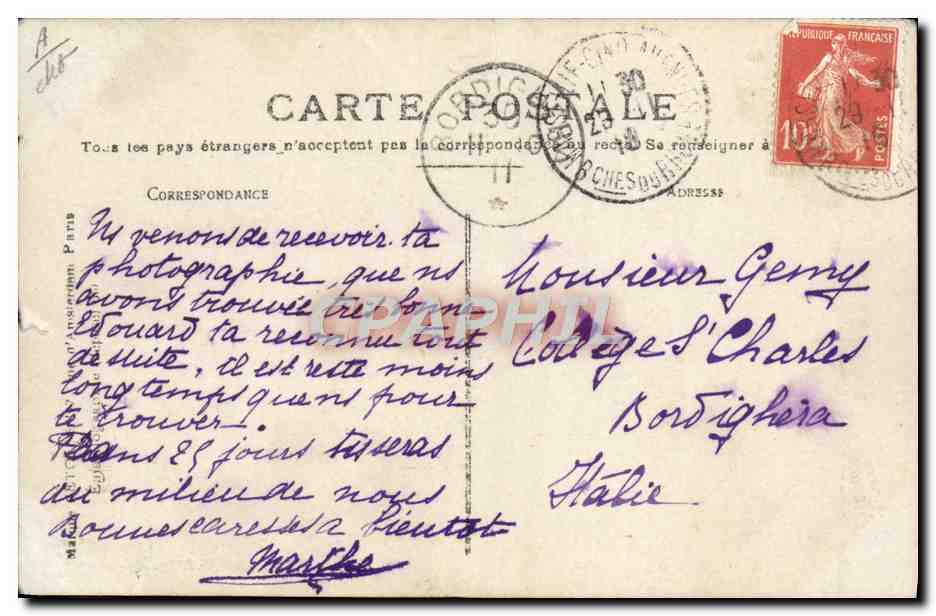 A
cho
CARTE POSTALE
Tous les pays étrangers n'acceptent pas la correspondance au recto. Se renseigner à
CORRESPONDANCE
ADRESSE
RÉPUBLIQUE FRANÇAISE
10
POSTES
BORDIGHERA
30
11
11
30
29
BCHES DU RHONE
Ns venons de recevoir ta
photographie, que ns
avons trouvée très bonne
Edouard t'a reconnu tout
de suite, il est resté moins
longtemps que ns pour
te trouver.
Dans 25 jours tu seras
au milieu de nous
Bonnes caresses à bientôt
Marthe
Monsieur Gemy
Collège St Charles
Bordighera
Italie
d'Amsterdam Paris
CPAPHIL